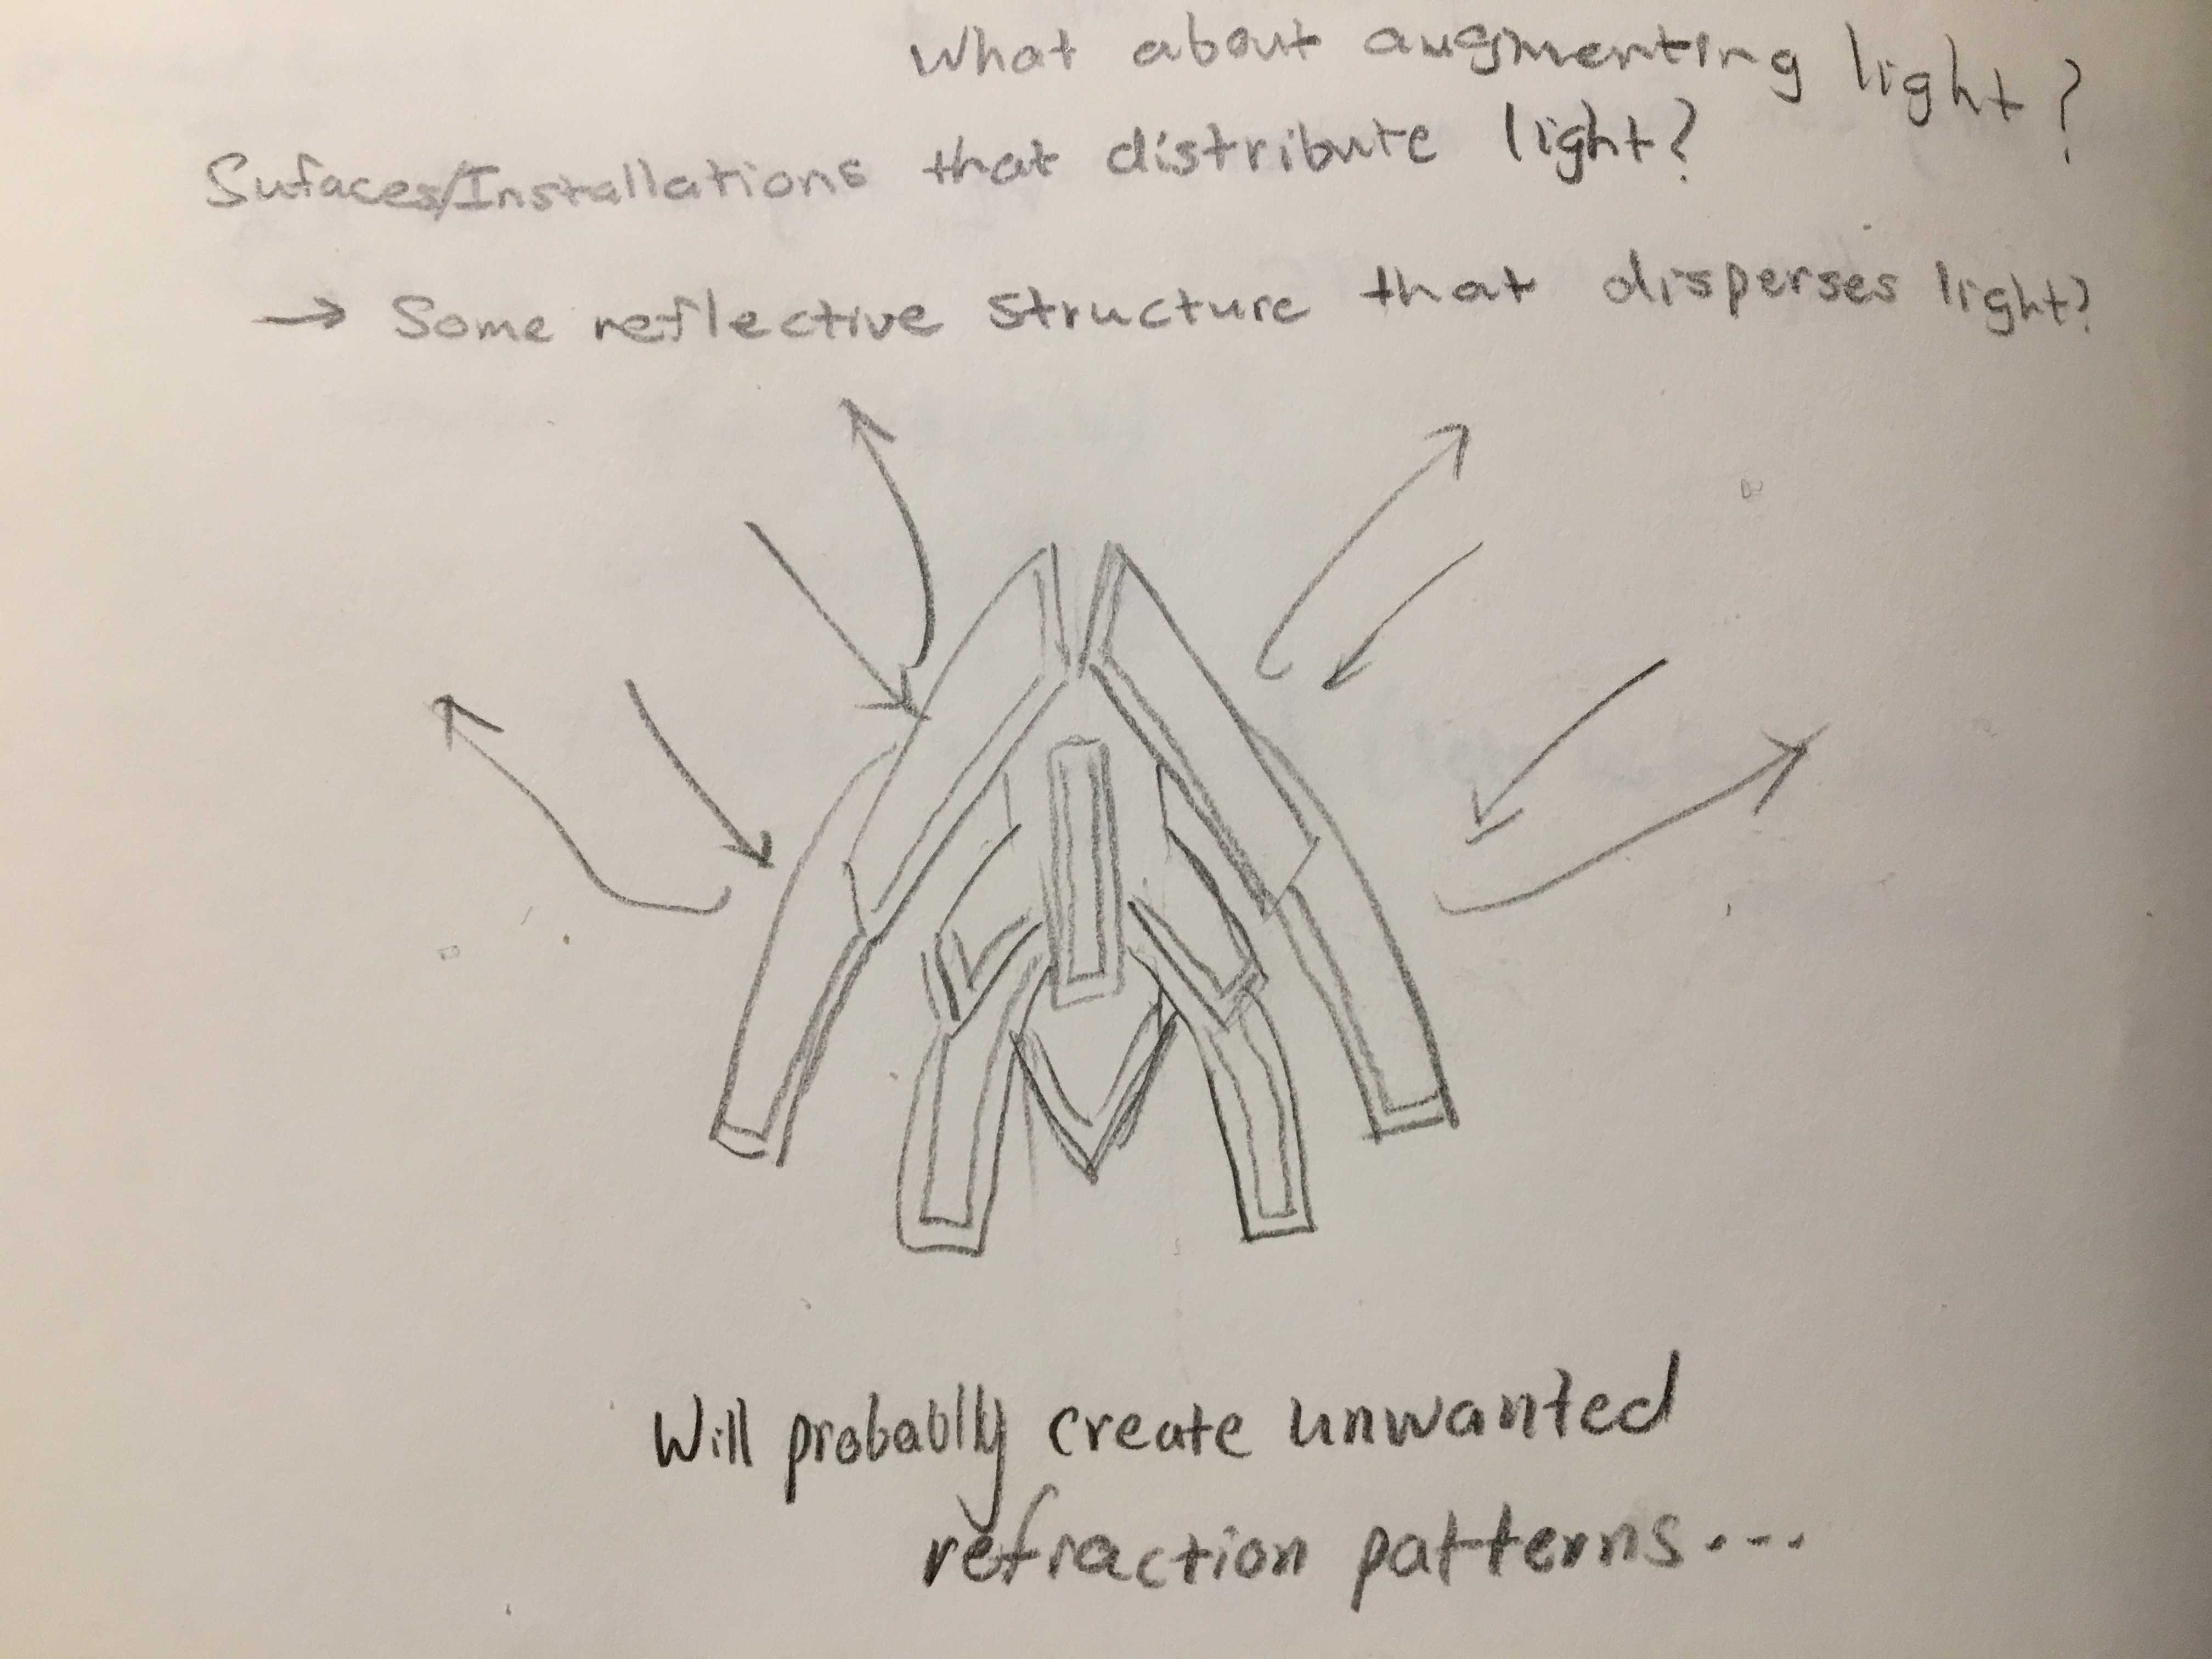 What about augmenting light?
Sufaces/Installations that distribute light?
→ Some reflective structure that disperses light?
Will probablly create unwanted
refraction patterns...